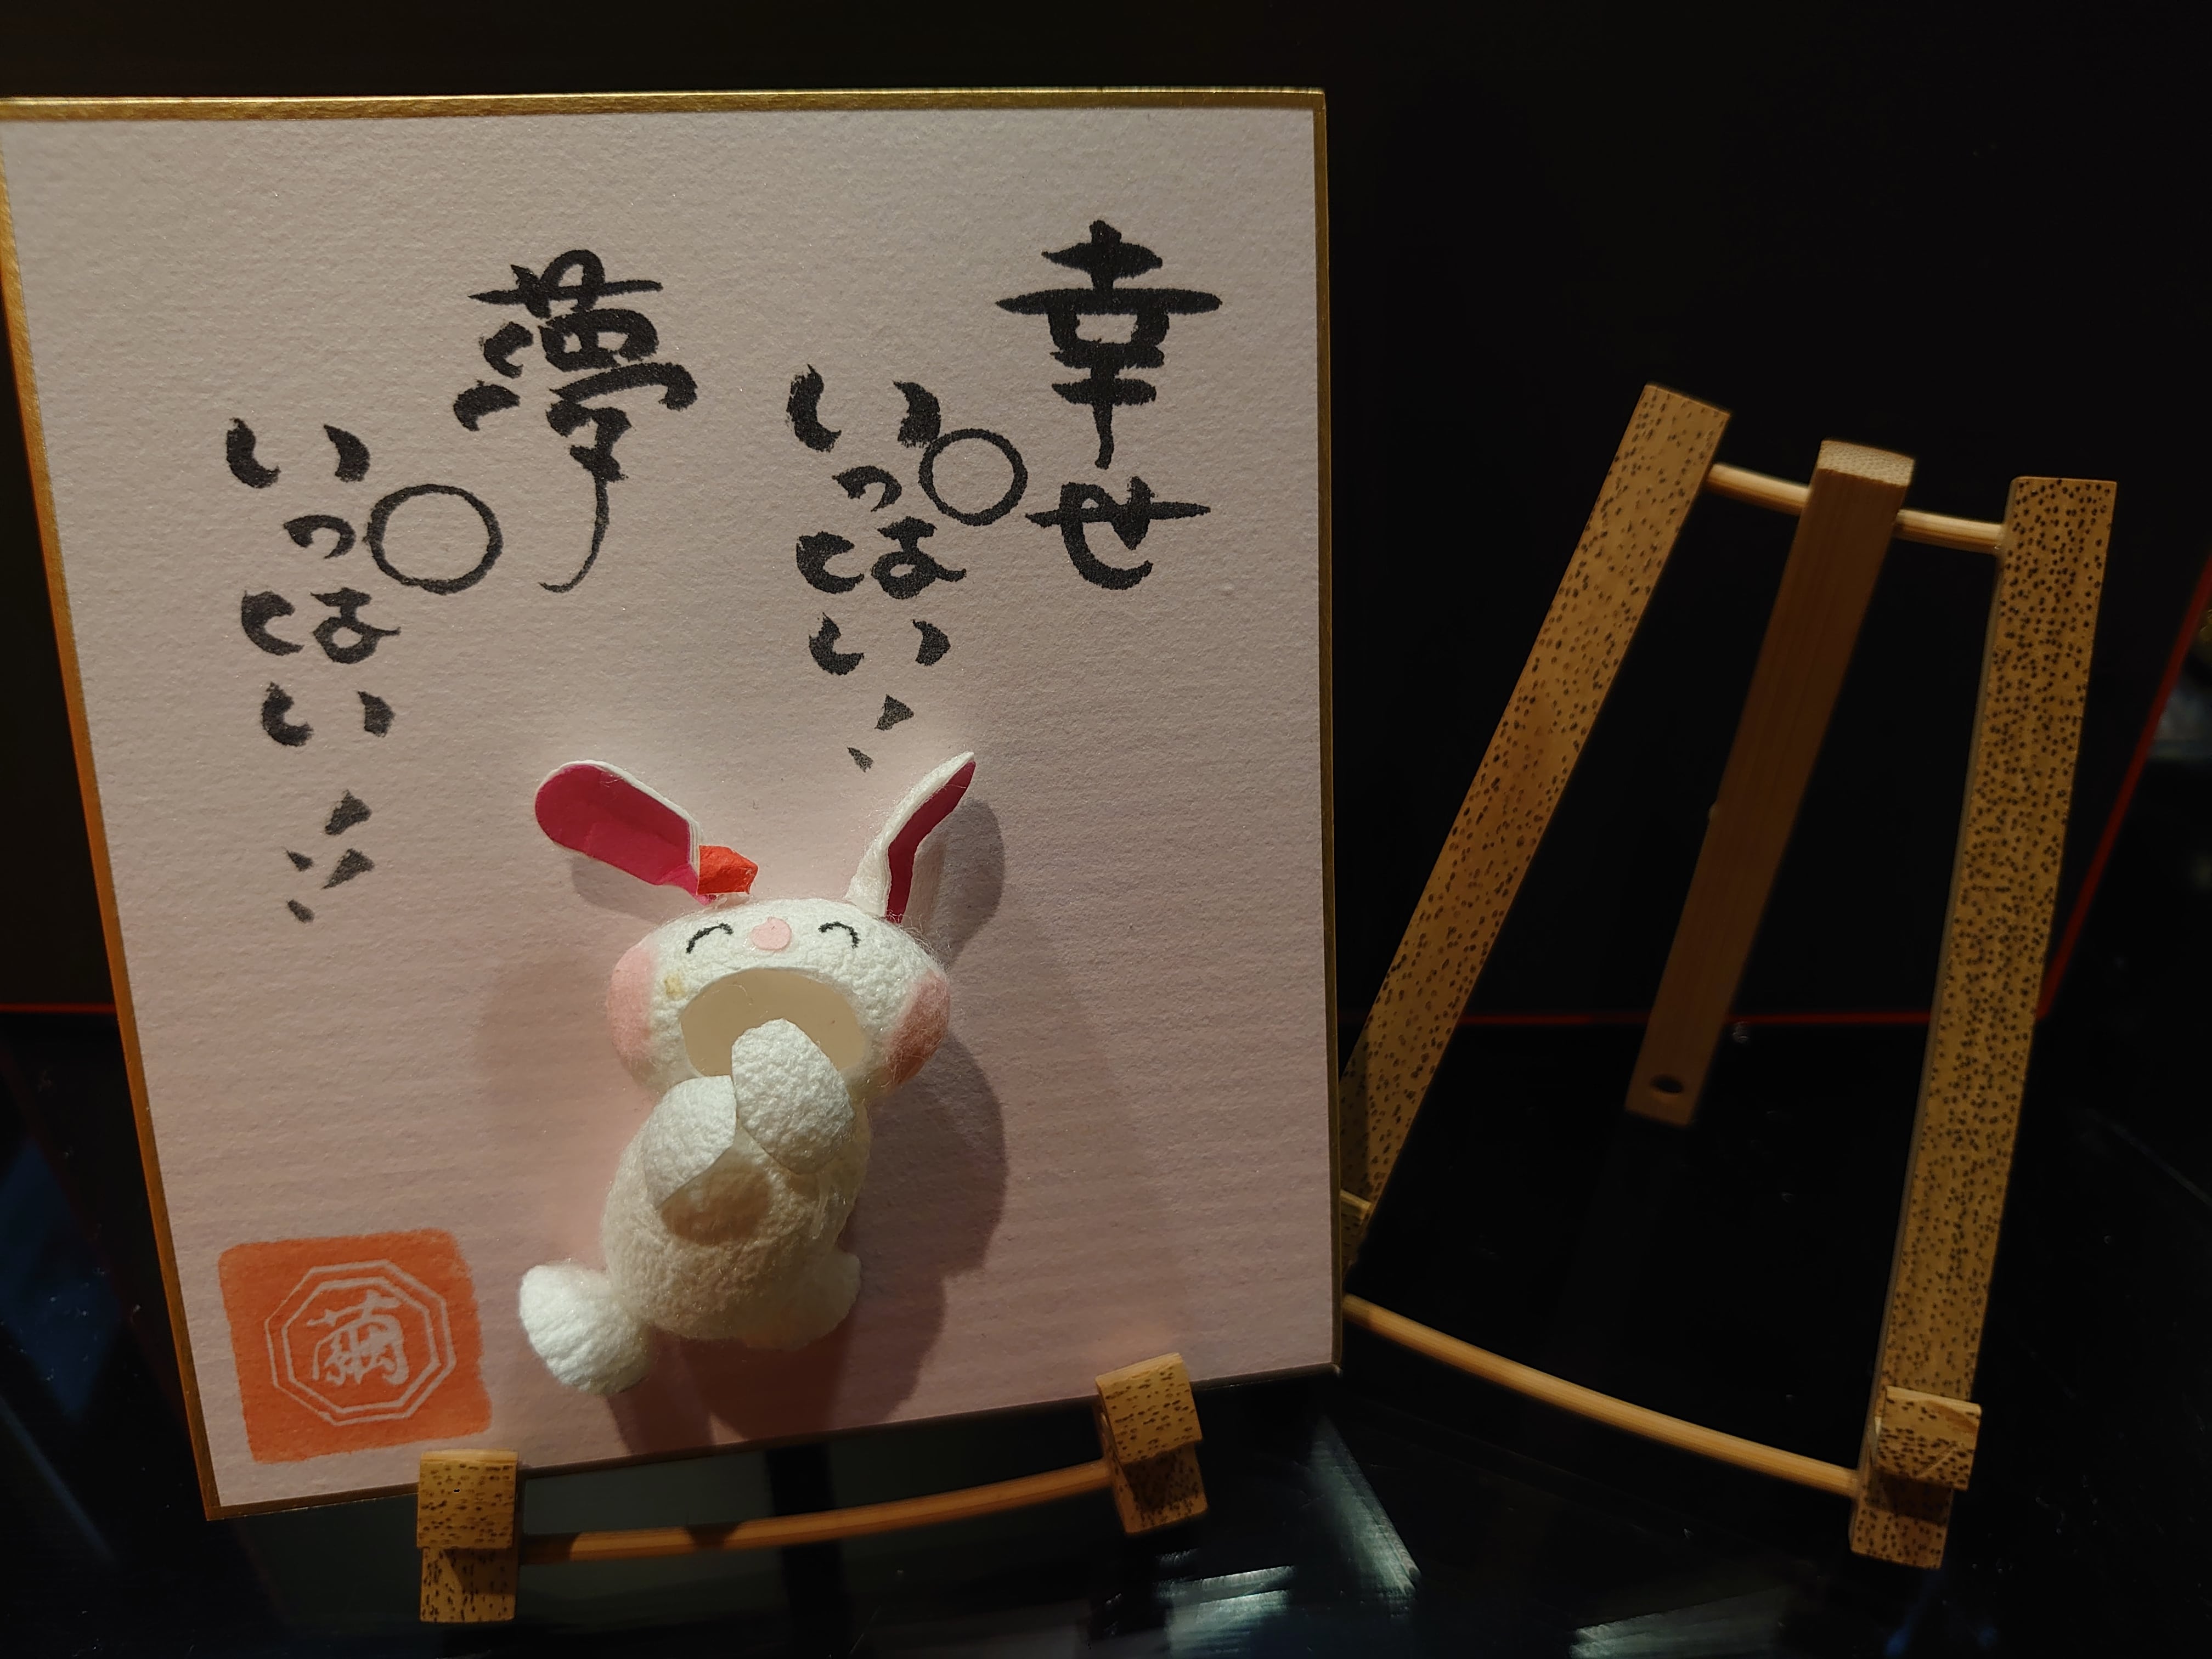 幸せ
いっぱい！
夢
いっぱい！！
繭